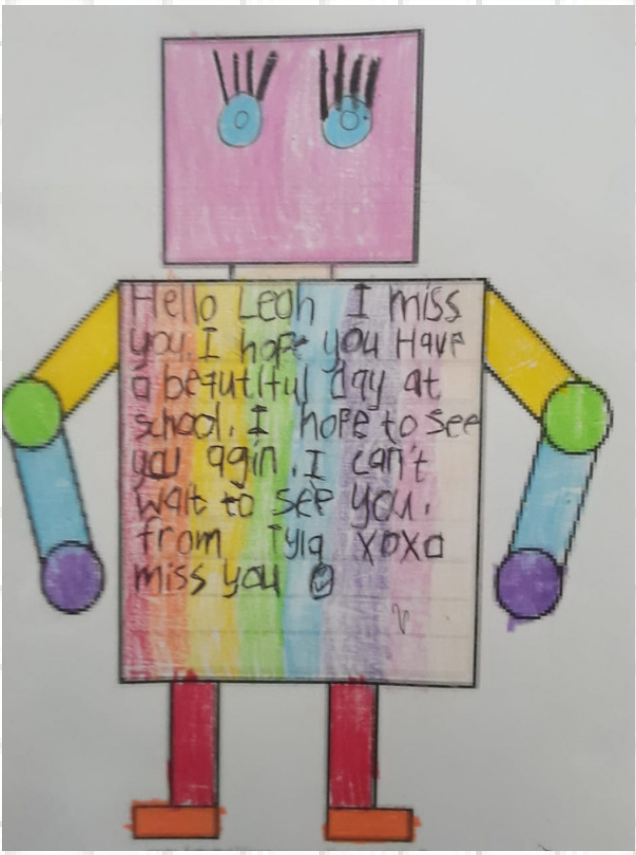 Hello Leah I miss
you. I hope you Have
a beautiful day at
school. I hope to see
you agin. I can't
wait to see you.
from Tyla xoxo
miss you